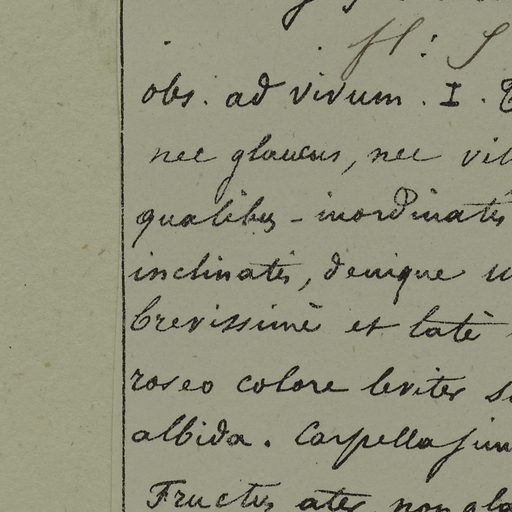 fl: S
obs. ad vivum. I.
nec glaucus, nec
qualibus - inordinatis
inclinatis, denique
brevissimè et latè
roseo colore leviter
albida. Carpella
Fructus ater non